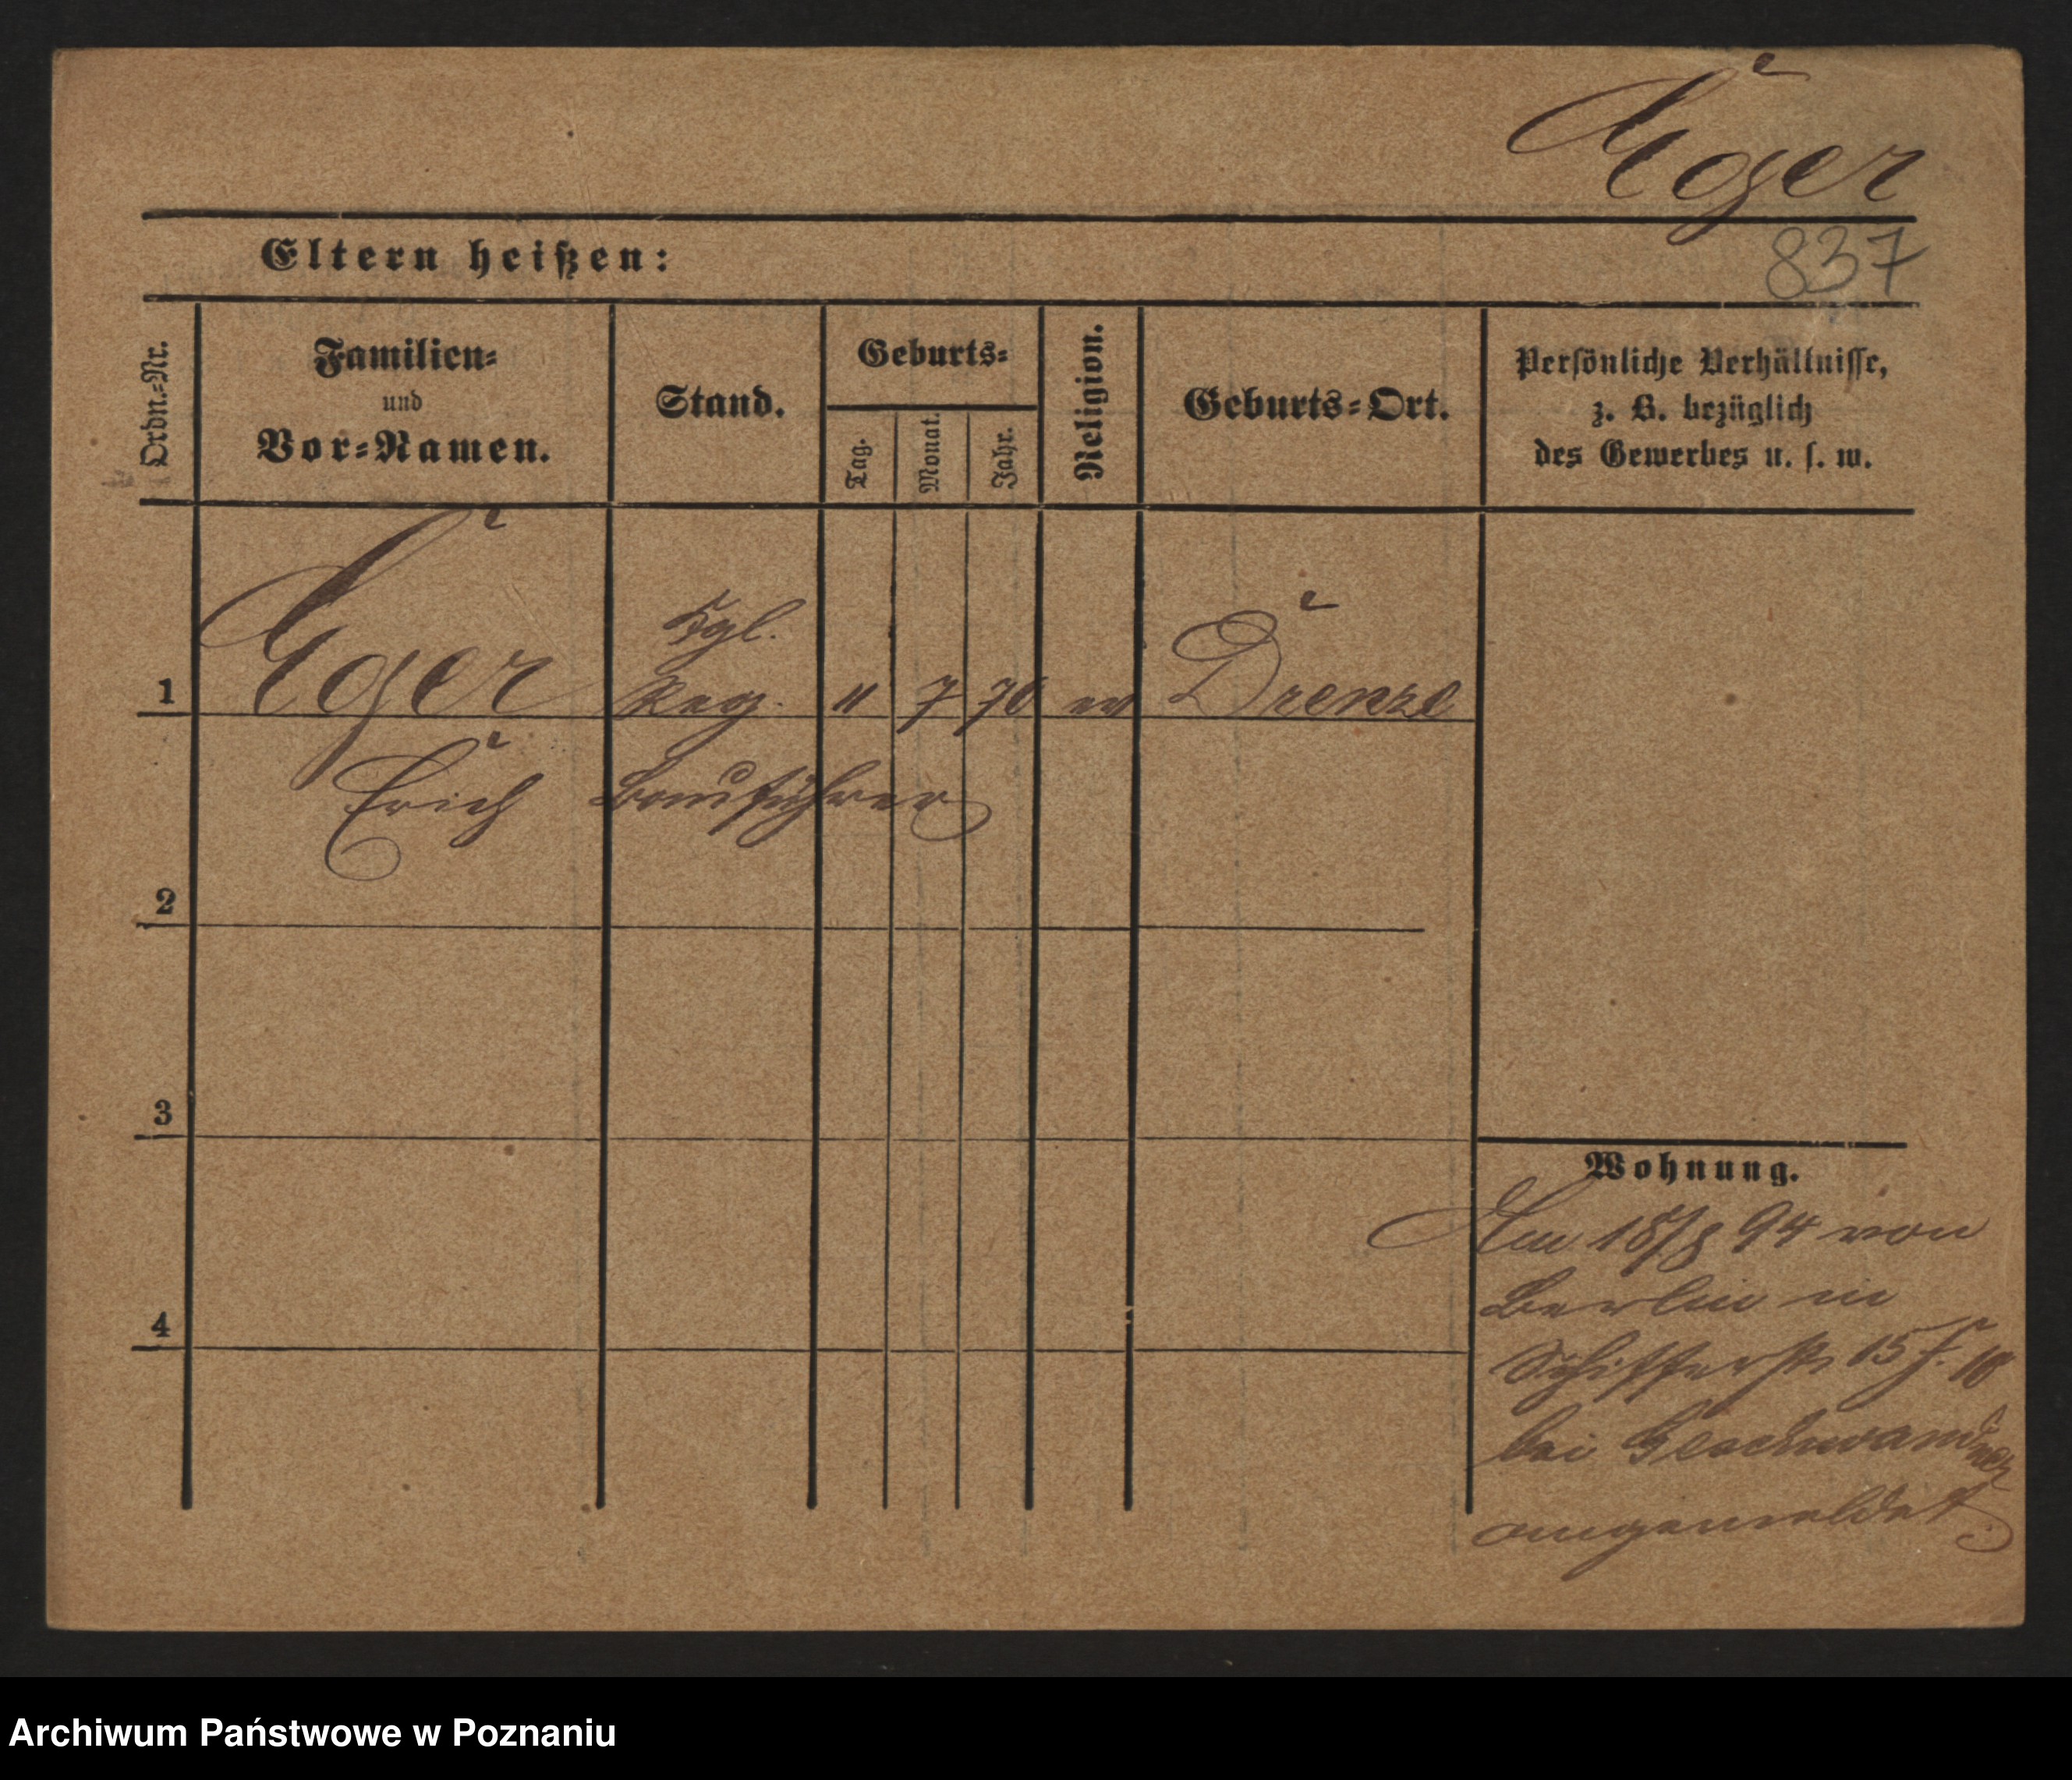 Eger
Eltern heißen:
837
Ordn.=Nr.
Familien=
und
Vor=Namen.
Stand.
Geburts=
Tag.
Monat.
Jahr.
Religion.
Geburts=Ort.
Persönliche Verhältnisse,
z. B. bezüglich
des Gewerbes u. s. w.
Kgl.
1 Eger Reg. 11 7 70 ev
Erich Bauführer
2
3
4
Wohnung.
Am 18/8 94 von
Berlin in
Schifferstr 15
bei
angemeldet
Archiwum Państwowe w Poznaniu